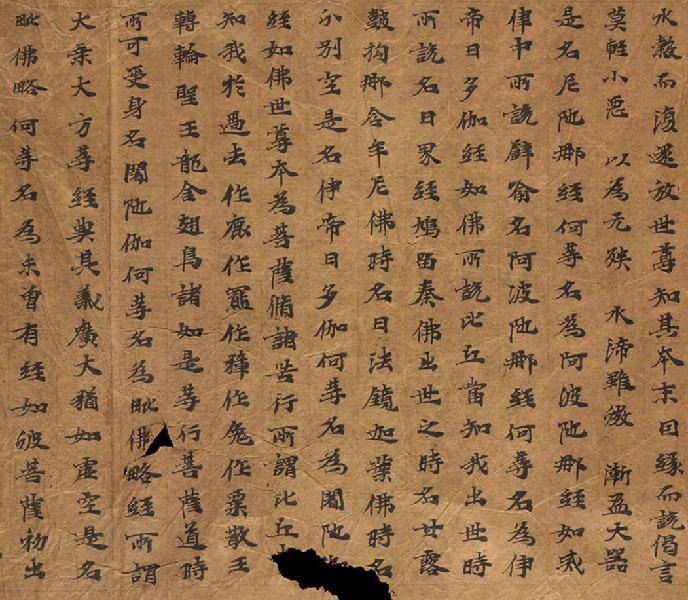 水穀而復還放世尊知其本末因緣而說偈言
莫輕小惡 以為无殃 水渧雖微 漸盈大器
是名尼陁那經何等名為阿波陁那經如戒
律中所說辟喻名阿波陁那經何等名為伊
帝曰多伽經如佛所說比丘當知我出世時
所說名曰界經鳩留秦佛出世之時名甘露
鼓拘那含牟尼佛時名曰法鏡迦葉佛時名
分別空是名伊帝曰多伽何等名為闍陁
經如佛世尊本為菩薩脩諸苦行所謂比丘
知我於過去作鹿作羆作獐作兔作粟散王
轉輪聖王龍金翅鳥諸如是等行菩薩道時
所可受身名闍陁伽何等名為毗佛略經所謂
大乘大方等經典其義廣大猶如虛空是名
毗佛略何等名為未曾有經如彼菩薩初出